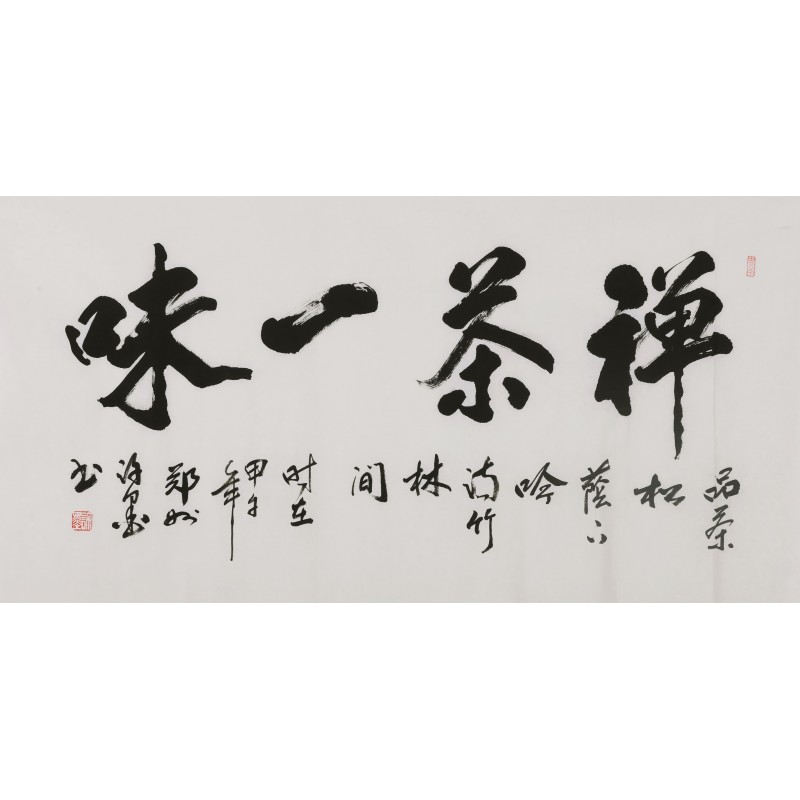 禅茶一味
品茶
松
荫下
吟
诗竹
林
间
时在
甲午
年
郑州
墨
书